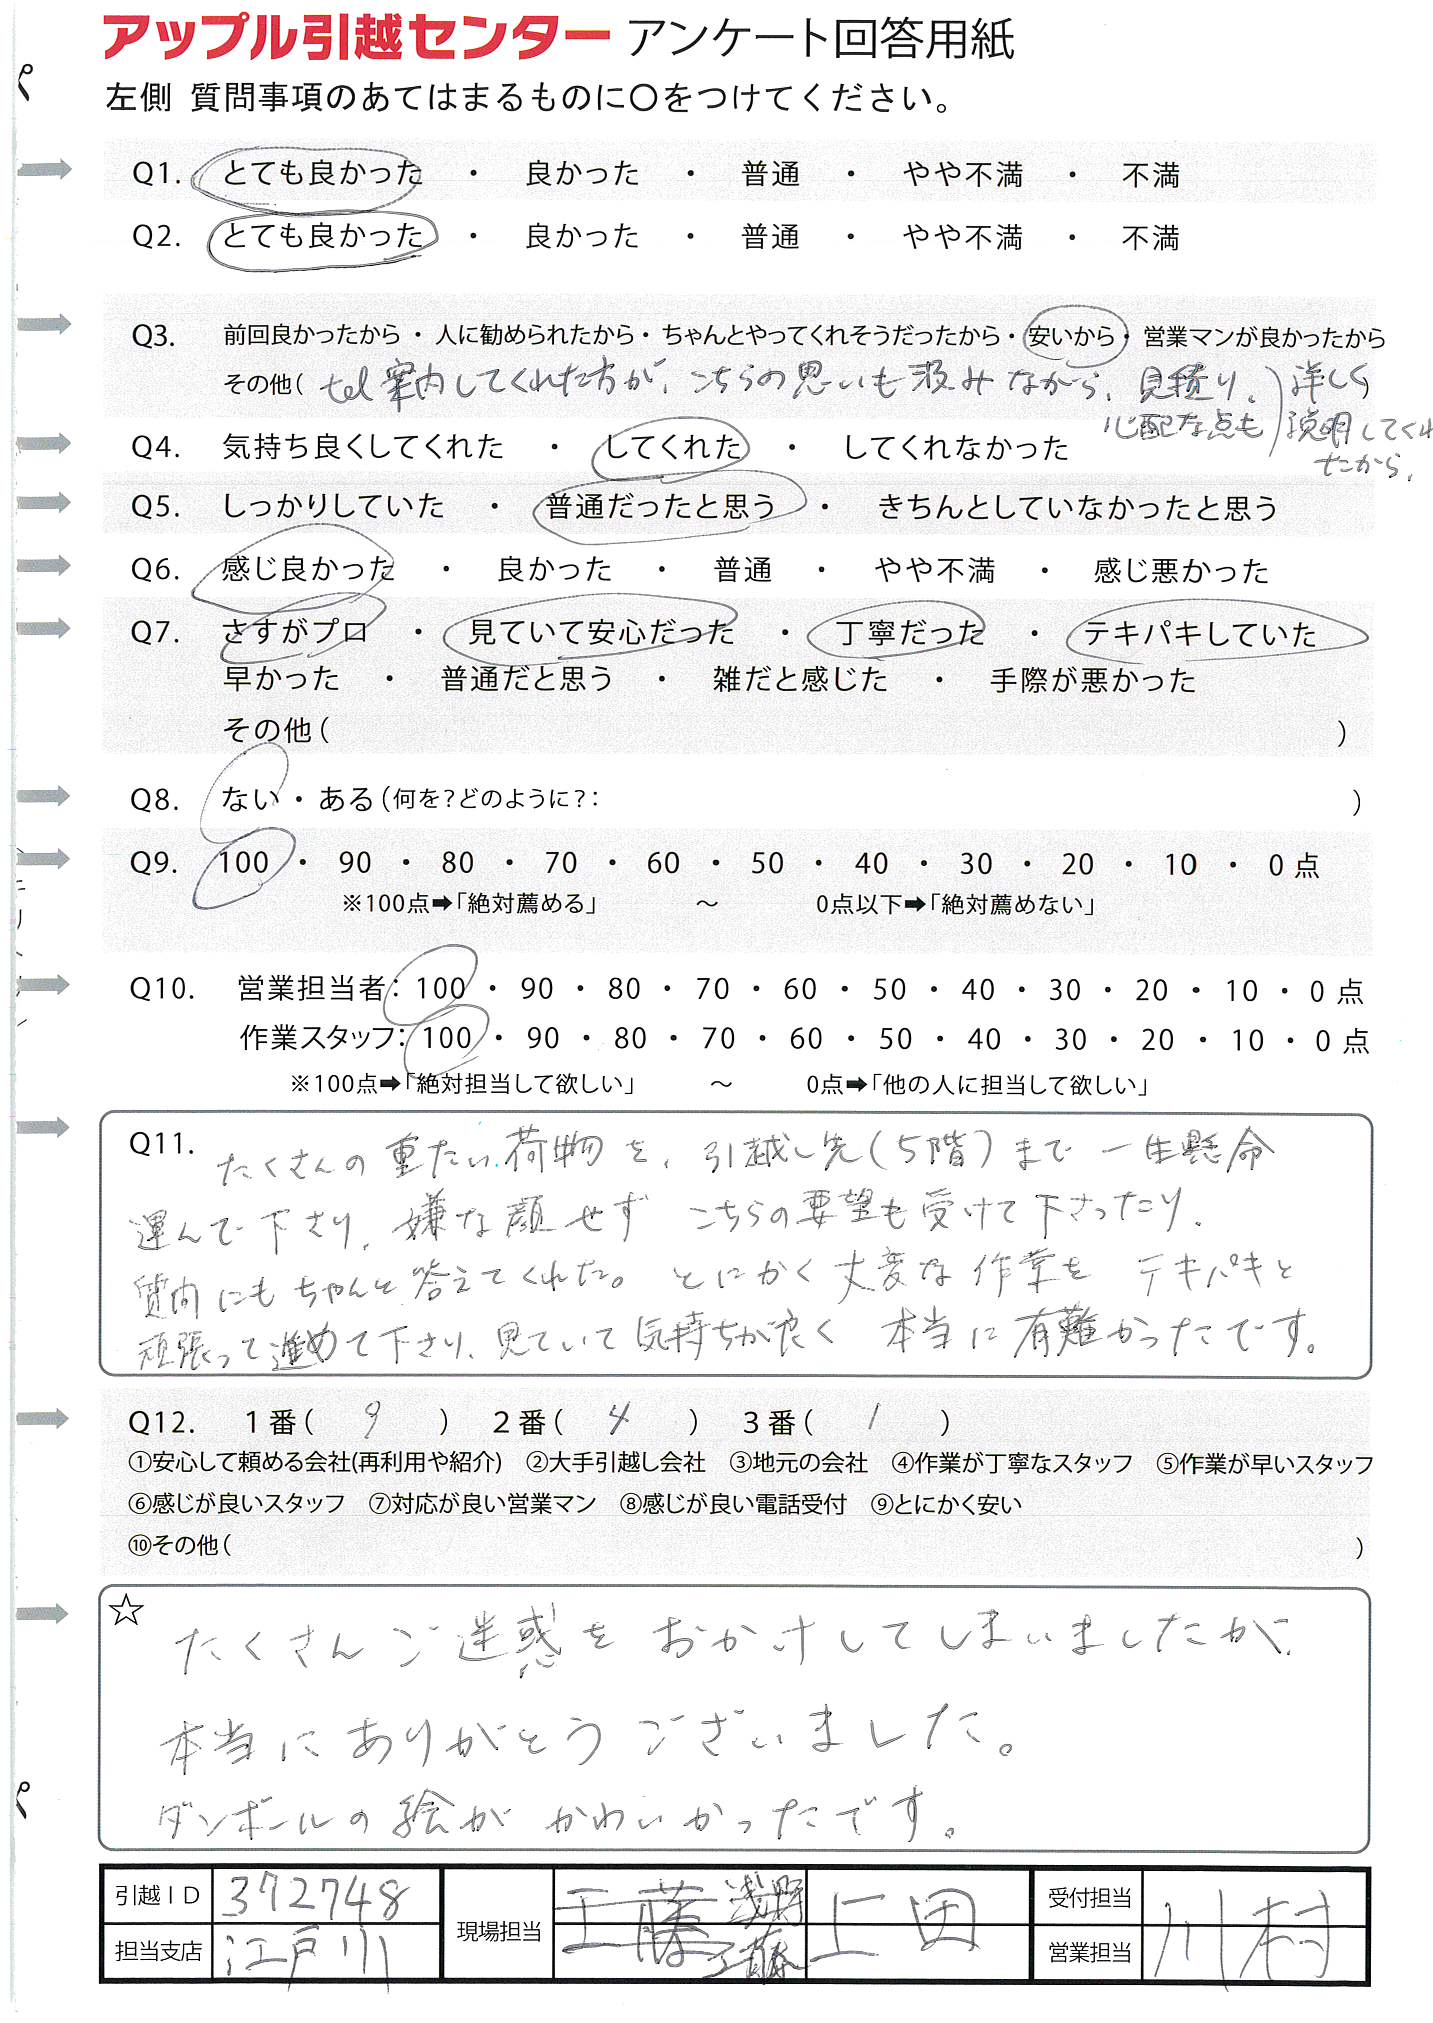 アップル引越センター アンケート回答用紙
左側 質問事項のあてはまるものに〇をつけてください。
Q1. とても良かった ・ 良かった ・ 普通 ・ やや不満 ・ 不満
Q2. とても良かった ・ 良かった ・ 普通 ・ やや不満 ・ 不満
Q3. 前回良かったから ・ 人に勧められたから ・ ちゃんとやってくれそうだったから ・ 安いから ・ 営業マンが良かったから
その他( tel案内してくれた方が、こちらの思いも汲みながら、見積り、 詳しく )
心配な点も 説明してくれ
たから、
Q4. 気持ち良くしてくれた ・ してくれた ・ してくれなかった
Q5. しっかりしていた ・ 普通だったと思う ・ きちんとしていなかったと思う
Q6. 感じ良かった ・ 良かった ・ 普通 ・ やや不満 ・ 感じ悪かった
Q7. さすがプロ ・ 見ていて安心だった ・ 丁寧だった ・ テキパキしていた
早かった ・ 普通だと思う ・ 雑だと感じた ・ 手際が悪かった
その他( )
Q8. ない ・ ある(何を?どのように?: )
Q9. 100 ・ 90 ・ 80 ・ 70 ・ 60 ・ 50 ・ 40 ・ 30 ・ 20 ・ 10 ・ 0 点
※100点➡「絶対薦める」 〜 0点以下➡「絶対薦めない」
Q10. 営業担当者: 100 ・ 90 ・ 80 ・ 70 ・ 60 ・ 50 ・ 40 ・ 30 ・ 20 ・ 10 ・ 0 点
作業スタッフ: 100 ・ 90 ・ 80 ・ 70 ・ 60 ・ 50 ・ 40 ・ 30 ・ 20 ・ 10 ・ 0 点
※100点➡「絶対担当して欲しい」 〜 0点➡「他の人に担当して欲しい」
Q11. たくさんの重たい荷物を、引越し先(5階)まで一生懸命
運んで下さり、嫌な顔せず こちらの要望も受けて下さったり、
質問にもちゃんと答えてくれた。とにかく大変な作業を テキパキと
頑張って進めて下さり、見ていて気持ちが良く 本当に有難かったです。
Q12. 1番( 9 ) 2番( 4 ) 3番( 1 )
①安心して頼める会社(再利用や紹介) ②大手引越し会社 ③地元の会社 ④作業が丁寧なスタッフ ⑤作業が早いスタッフ
⑥感じが良いスタッフ ⑦対応が良い営業マン ⑧感じが良い電話受付 ⑨とにかく安い
⑩その他( )
☆ たくさんご迷惑を おかけしてしまいましたが、
本当に ありがとう ございました。
ダンボールの絵が かわいかったです。
引越ID 372748 現場担当 工藤 浅野 工藤 上田 受付担当 川村
担当支店 江戸川 営業担当